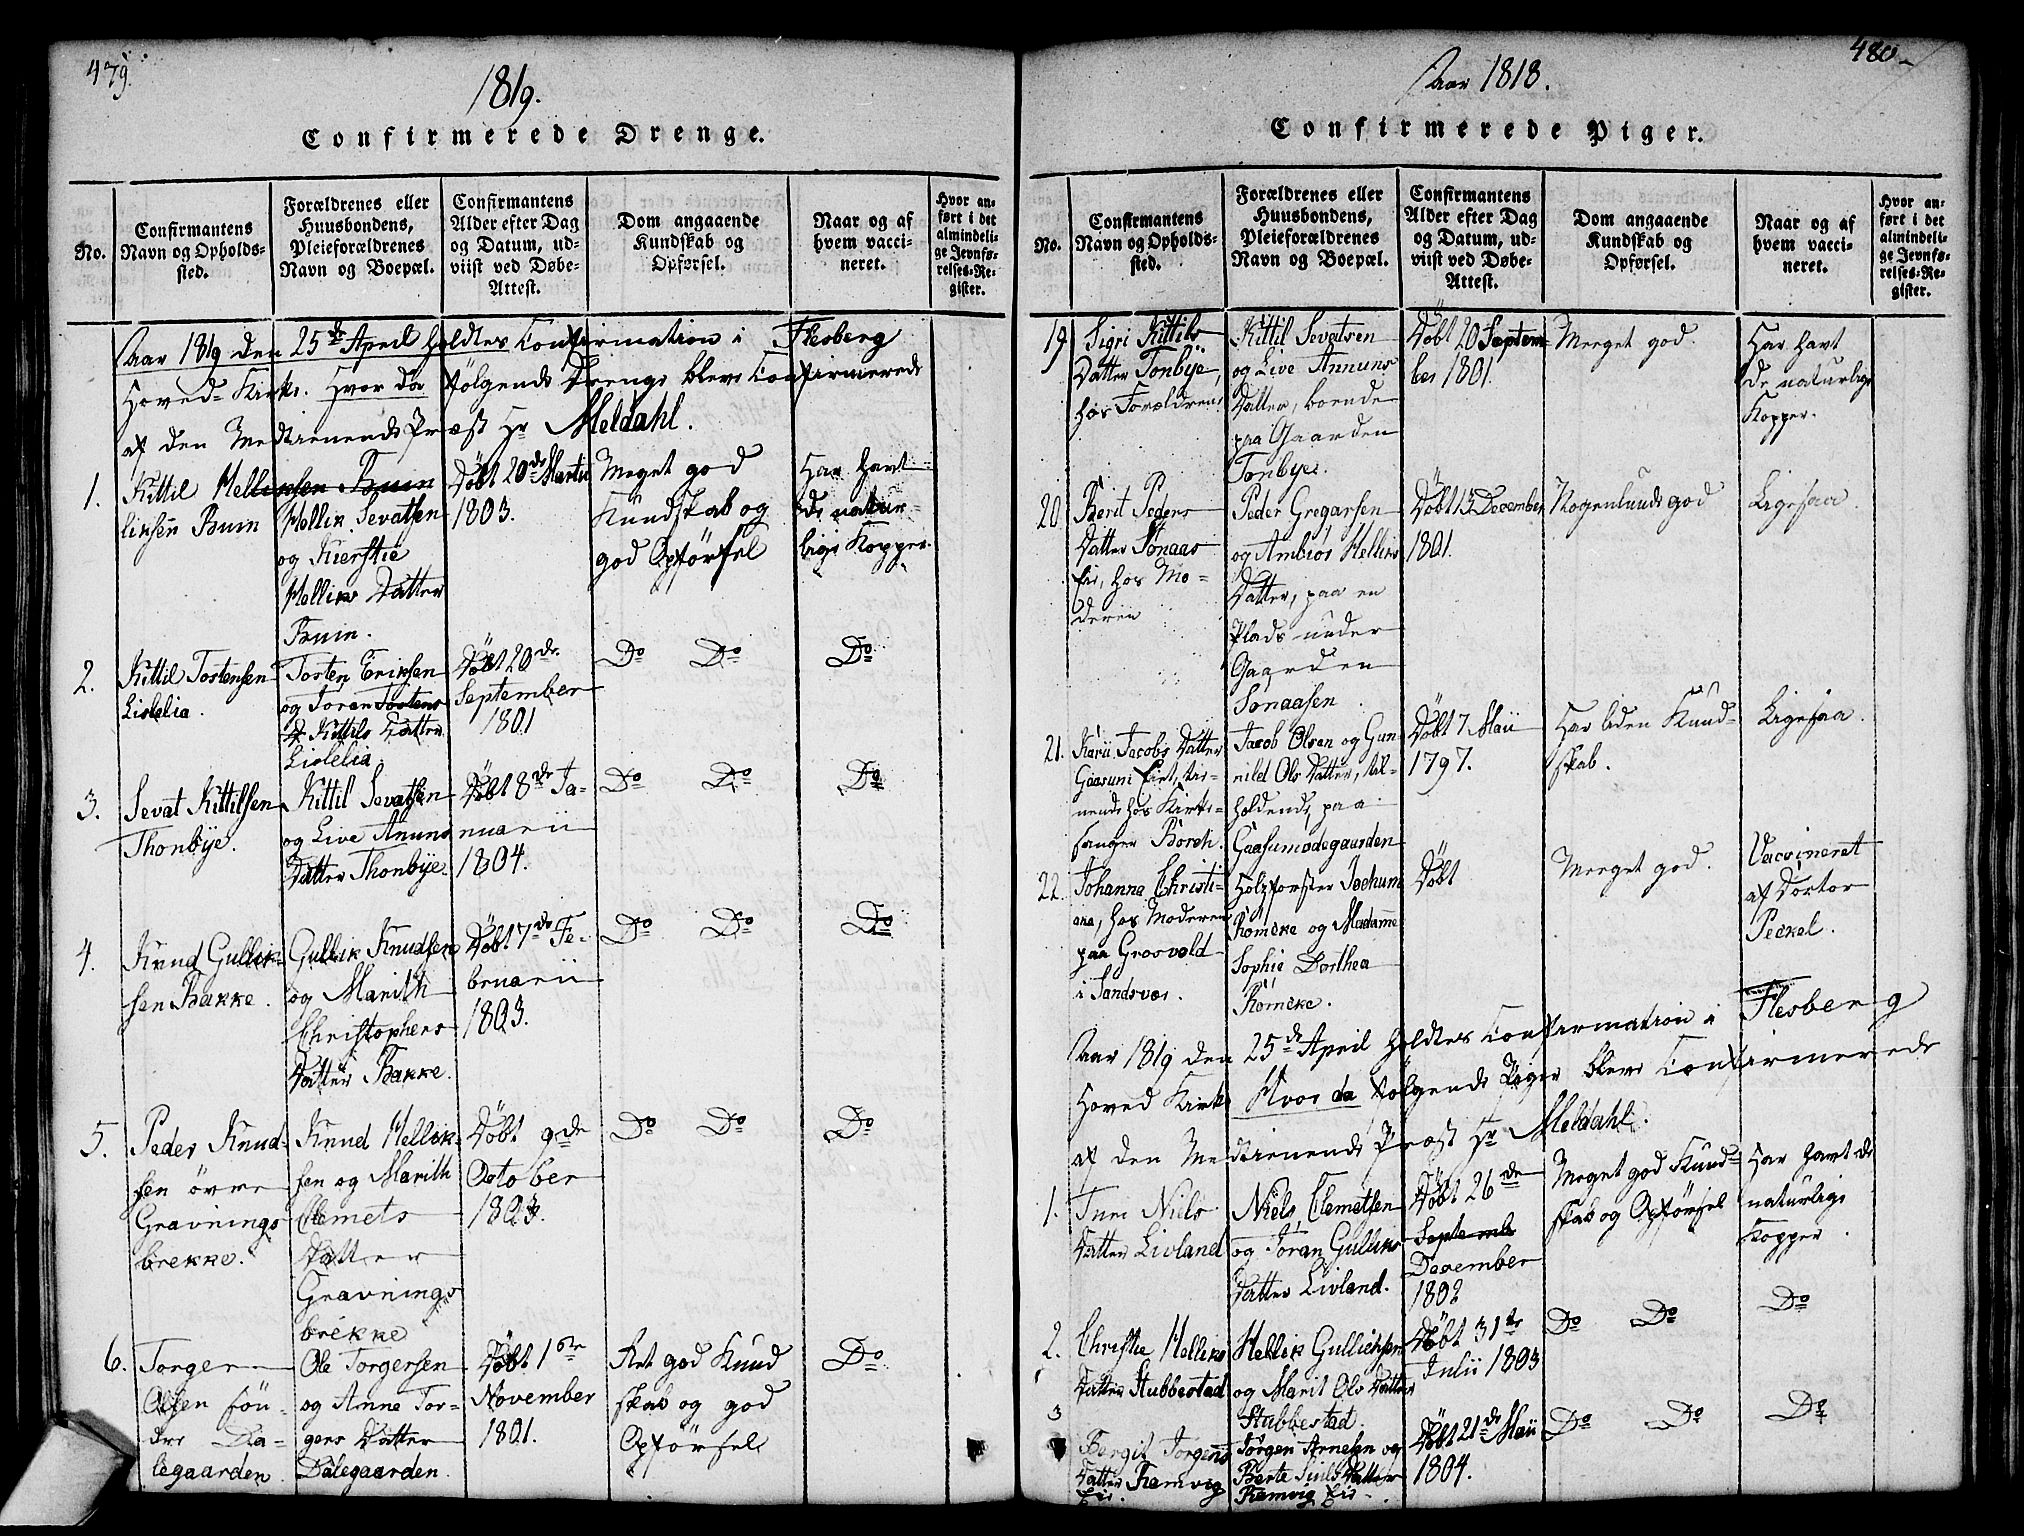 479.
1819.
Confirmerede Drenge.
No.
Confirmantens
Navn og Opholds-
sted.
Forældrenes eller
Huusbondens,
Pleieforældrenes
Navn og Boepæl.
Confirmantens
Alder efter Dag
og Datum, ud-
viist ved Døbe-
Attest.
Dom angaaende
Kundskab og
Opførsel.
Naar og af
hvem vacci-
neret.
Hvor an-
ført i det
almindeli-
ge Jevnfø-
relses-Re-
gister.
Aar 1819 den 25de April holdtes Confirmation i Flesberg
Hoved-Kirke. Hvor da følgende Drenge bleve Confirmerede
af den Medtienende Præst Hr Meldahl.
1.
Kittil Hel
liksen Bruin
Hellik Sevatsen
og Kierstie
Helliks Datter
Bruin.
Døbt 20de Martii
1803.
Meget god
Kundskab og
god Opførsel
Har havt
de natur-
lige Kopper.
2.
Kittil Tostensen
Lislelia.
Tosten Eriksen
og Jøran Tostens
D Kittils Datter
Lislelia.
Døbt 20de
September
1801
Do Do
Do
3.
Sevat Kittilsen
Thonbye.
Kittil Sevatsen
og Live Anuns
Datter Thonbye.
Døbt 8de Ja-
nuarii
1804.
Do Do
Do
4.
Knud Gullik-
sen Bakke.
Gullik Knudsen
og Marith
Christophers
Datter Bakke.
Døbt 7de Fe-
bruarii
1803.
Do Do
Do
5.
Peder Knud-
sen övre
Gravnings
brekke.
Knud Hellik-
sen og Marith
Clemets
Datter
Gravnings
brekke
Døbt 9de
October
1803.
Do Do
Do
6.
Torger
Olsen søn-
dre Da-
legaarden.
Ole Torgersen
og Anne Tor-
gers Datter
Dalegaarden.
Døbt 1ste
November
1801.
Ret god Kund
skab og god
Opførsel
Do
480
Aar 1818.
Confirmerede Piger.
No.
Confirmantens
Navn og Opholds-
sted.
Forældrenes eller
Huusbondens,
Pleieforældrenes
Navn og Boepæl.
Confirmantens
Alder efter Dag
og Datum, ud-
viist ved Døbe-
Attest.
Dom angaaende
Kundskab og
Opførsel.
Naar og af
hvem vacci-
neret.
Hvor an-
ført i det
almindeli-
ge Jevnfø-
relses-Re-
gister.
19.
Sigri Kittils
Datter Tonbye,
hos Forældrene
Kittil Sevatsen
og Live Annuns
Datter, boende
paa Gaarden
Tonbye.
Døbt 20 Septem-
ber 1801.
Meeget god.
Har havt
de naturlige
Kopper.
20.
Berit Peders
Datter Sønaas
Eie, hos Mo-
deren
Peder Gregarsen
og Ambiør Helliks
Datter, paa en
Plads under
Gaarden
Sønaasen.
Døbt 13 December
1801.
Nogenlunde god
Ligesaa.
21.
Karii Jacobs Datter
Gaasuni Eiet, tie-
nende hos Kirke-
sanger Borch.
Jacob Olsen og Gun
nild Ols Datter, til-
holdende paa
Gaasumødegaarden
Døbt 7 Maii
1797.
Har liden Kund-
skab.
Ligesaa.
22.
Johanna Christi-
ana, hos Moderen
paa Grosvold
i Sandsvær.
Holzførster Jochum
Rømcke og Madamme
Sophie Dorthea
Rømcke.
Døbt
Meeget god.
Vaccineret
af Doctor
Peckel.
Aar 1819 den 25de April holdtes Confirmation i Flesberg
Hoved Kirke Hvor da følgende Piger bleve Confirmerede
af den Medtienende Præst Hr Meldahl.
1.
Turi Niels
Datter Livland
Niels Clemetsen
og Jøran Gulliks
Datter Livland.
Døbt 26de
Septemb
December
1802
Meget god Kund-
skab og Opførsel
Har havt de
naturlige
Kopper.
2.
Christie Helliks
Datter Stubbestad
Hellik Gullichsen
og Marit Ols Datter
Stubbestad.
Døbt 31te
Julii 1803
Do Do
Do
3
Bergit Jørgens
Datter Ramvig
Eie.
Jørgen Arnesen og
Berte Datter
Ramvig Eie.
Døbt 21de Maii
1804.
Do Do
Do